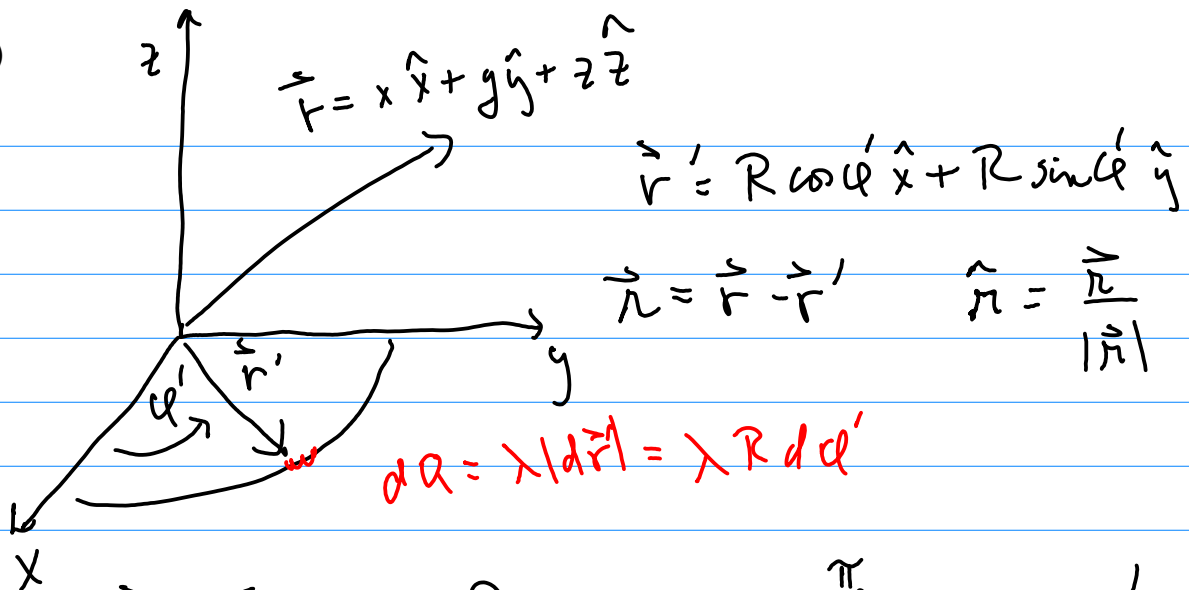 z
r⃗ = x x̂ + y ŷ + z ẑ
r⃗' = R cosφ' x̂ + R sinφ' ŷ
𝓇⃗ = r⃗ - r⃗'   𝓇̂ = 𝓇⃗ / |𝓇⃗|
r⃗'
y
φ'
dQ = λ|dr⃗'| = λ R dφ'
x
π